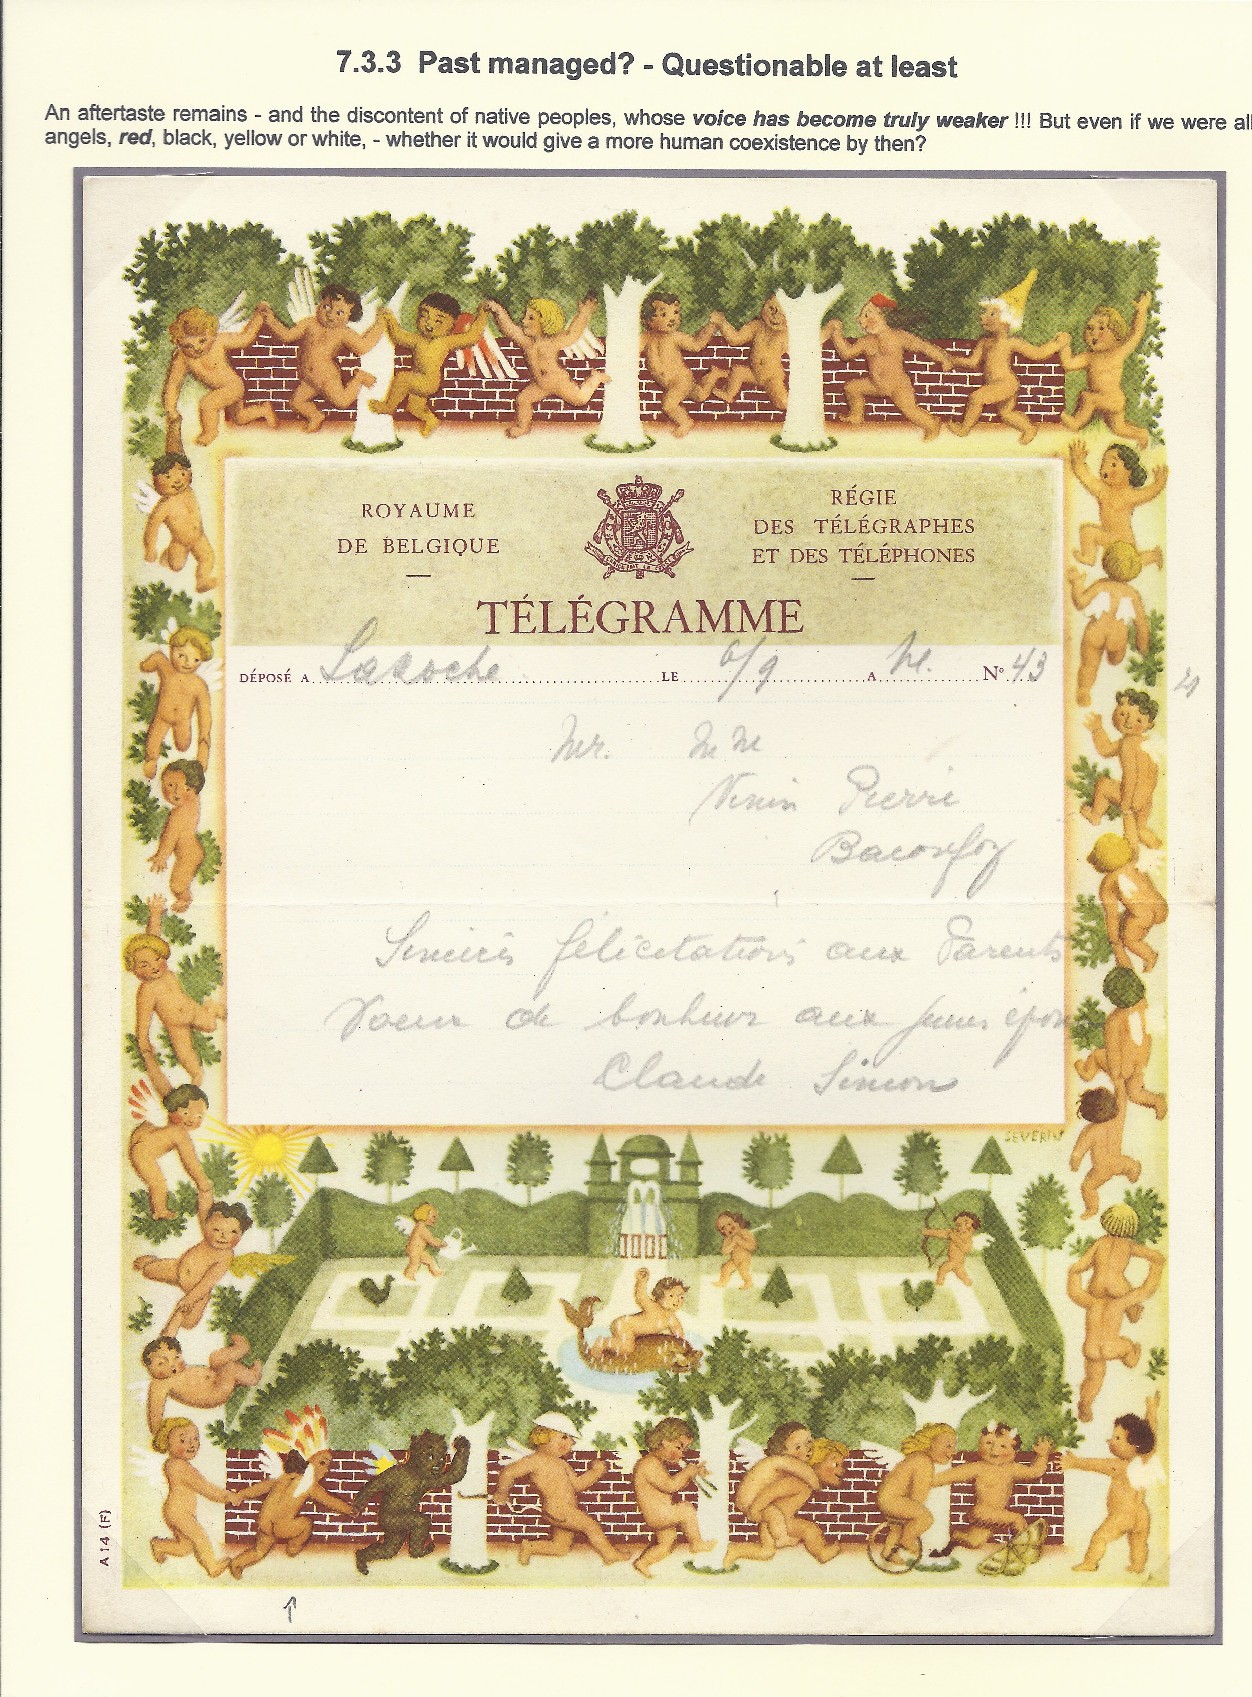 7.3.3 Past managed? - Questionable at least
An aftertaste remains - and the discontent of native peoples, whose voice has become truly weaker !!! But even if we were all
angels, red, black, yellow or white, - whether it would give a more human coexistence by then?
ROYAUME
DE BELGIQUE
RÉGIE
DES TÉLÉGRAPHES
ET DES TÉLÉPHONES
TÉLÉGRAMME
DÉPOSÉ A Laroche LE 6/9 A N° 43
Mr.
Pierre
Baconfoy
félicitations aux Parents
Voeux de bonheur aux
Claude Simon
SEVERIN
A 14 (F)